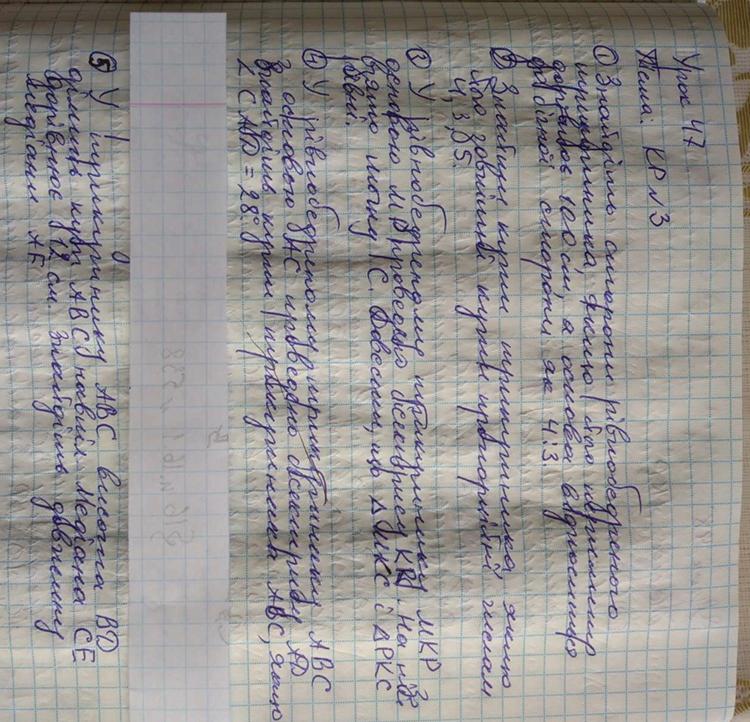 Урок 47
Тема: КР №3
① Знайдіть сторони рівнобедреного
трикутника, якщо його периметр
дорівнює 100 см, а основа відноситься
до бічної сторони як 4:3.
② Знайдіть кути трикутника, якщо
його зовнішні кути пропорційні числам
4, 3, 5.
③ У рівнобедреному трикутнику МКР з
основою МР проведено бісектрису КА. На ній
взято точку С. Довести, що ΔМКС і ΔРКС
рівні.
④ У рівнобедреному трикутнику АВС
з основою АС проведено бісектрису AD
Знайдіть кути трикутника АВС, якщо
∠CAD = 28°
⑤ У трикутнику АВС висота BD
ділить кут АВС навпіл. Медіана СЕ
дорівнює 12 см. Знайдіть довжину
медіани AF